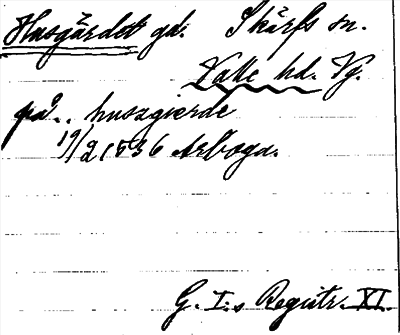 Husgärdet gd. Skärfs sn.
Valle hd. Vg.
på .. huszgierde
19/2 1536 Arboga.
G. I:s Registr. XI.